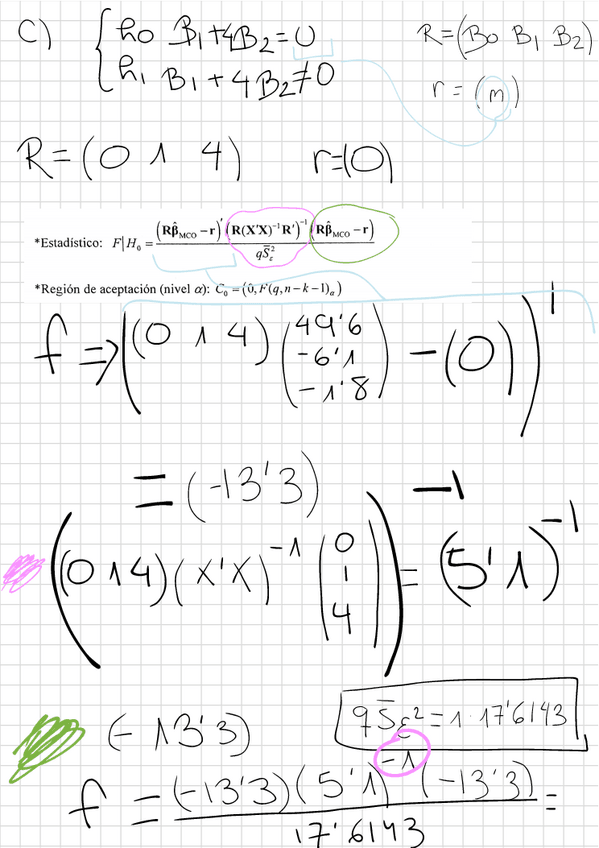 C) { h0 B₁+4B₂=0
h₁ B₁+4B₂≠0
R=(B0 B₁ B₂)
r=(m)
R=(0 1 4) r=(0)
*Estadístico: F|H₀ = (Rβ̂_MCO − r)′ (R(X′X)⁻¹R′)⁻¹ (Rβ̂_MCO − r) / qS̄²_ε
*Región de aceptación (nivel α): C₀ = (0, F(q, n − k − 1)_α)
f ⇒ ((0 1 4) (49'6 -6'1 -1'8) − (0))'
= (-13'3)
((0 1 4)(X'X)⁻¹ (0 1 4))⁻¹ = (5'1)⁻¹
(-13'3)
qS̄ε² = 1·17'6143
f = (-13'3)(5'1)⁻¹(-13'3) / 17'6143 =